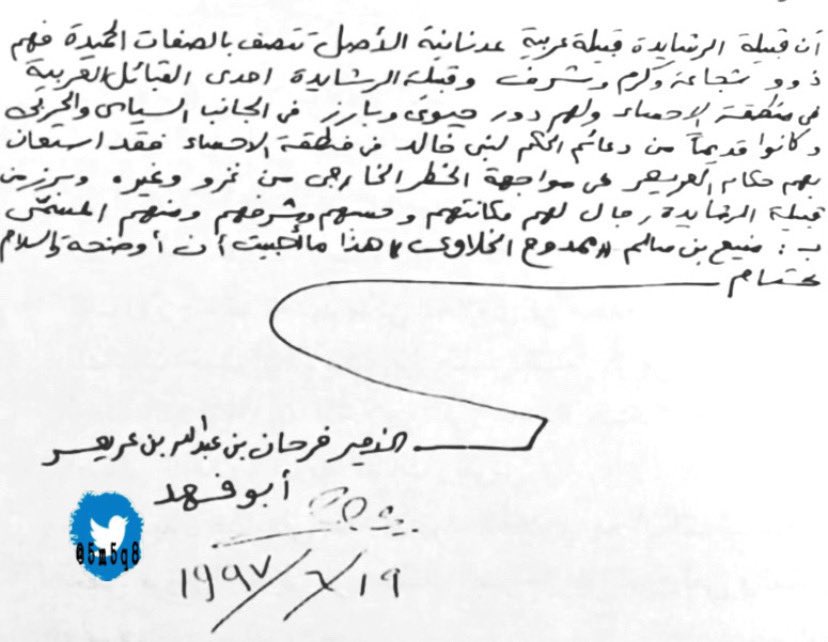 أن قبيلة الرشايدة قبيلة عربية عدنانية الأصل تتصف بالصفات الحميدة فهم
ذوو شجاعة وكرم وشرف وقبيلة الرشايدة احدى القبائل العربية
في منطقة الاحساء ولهم دور حيوي وبارز في الجانب السياسي والحربي
وكانوا قديماً من دعائم الحكم لبني خالد في منطقة الاحساء فقد استعان
بهم حكام العريعر في مواجهة الخطر الخارجي من غزو وغيره وبرز من
قبيلة الرشايدة رجال لهم مكانتهم وحسبهم وشرفهم ومنهم المسمى
ب : منيع بن سالم "ممدوح الخلاوي" هذا ما أحببت أن أوضحه والسلام
ختام
الأمير فرحان بن عبدالله بن عريعر
أبو فهد
١٩٩٧/٦/١٩
@5m5q8